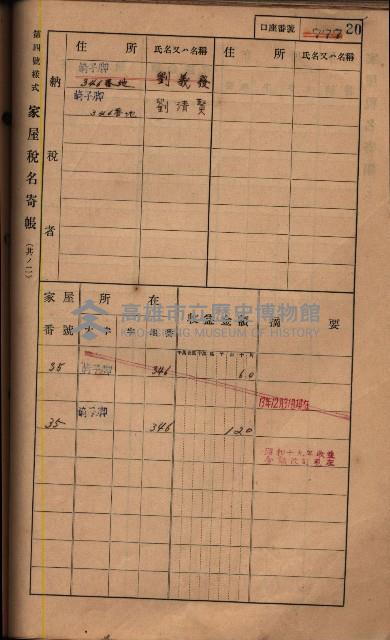 口座番號 777 20
第四號樣式 家屋稅名寄帳(其ノ二)
納稅者
住所 氏名又ハ名稱 住所 氏名又ハ名稱
萡子脚
346番地 劉義發
萡子脚
346番地 劉清賢
家屋番號 所在 收益金額 摘要
大字 字 地番
35 萡子脚 346 60
19年12月31日現在
35 萡子脚 346 120
昭和十九年收益
金額改訂
高雄市立歷史博物館
KAOHSIUNG MUSEUM OF HISTORY